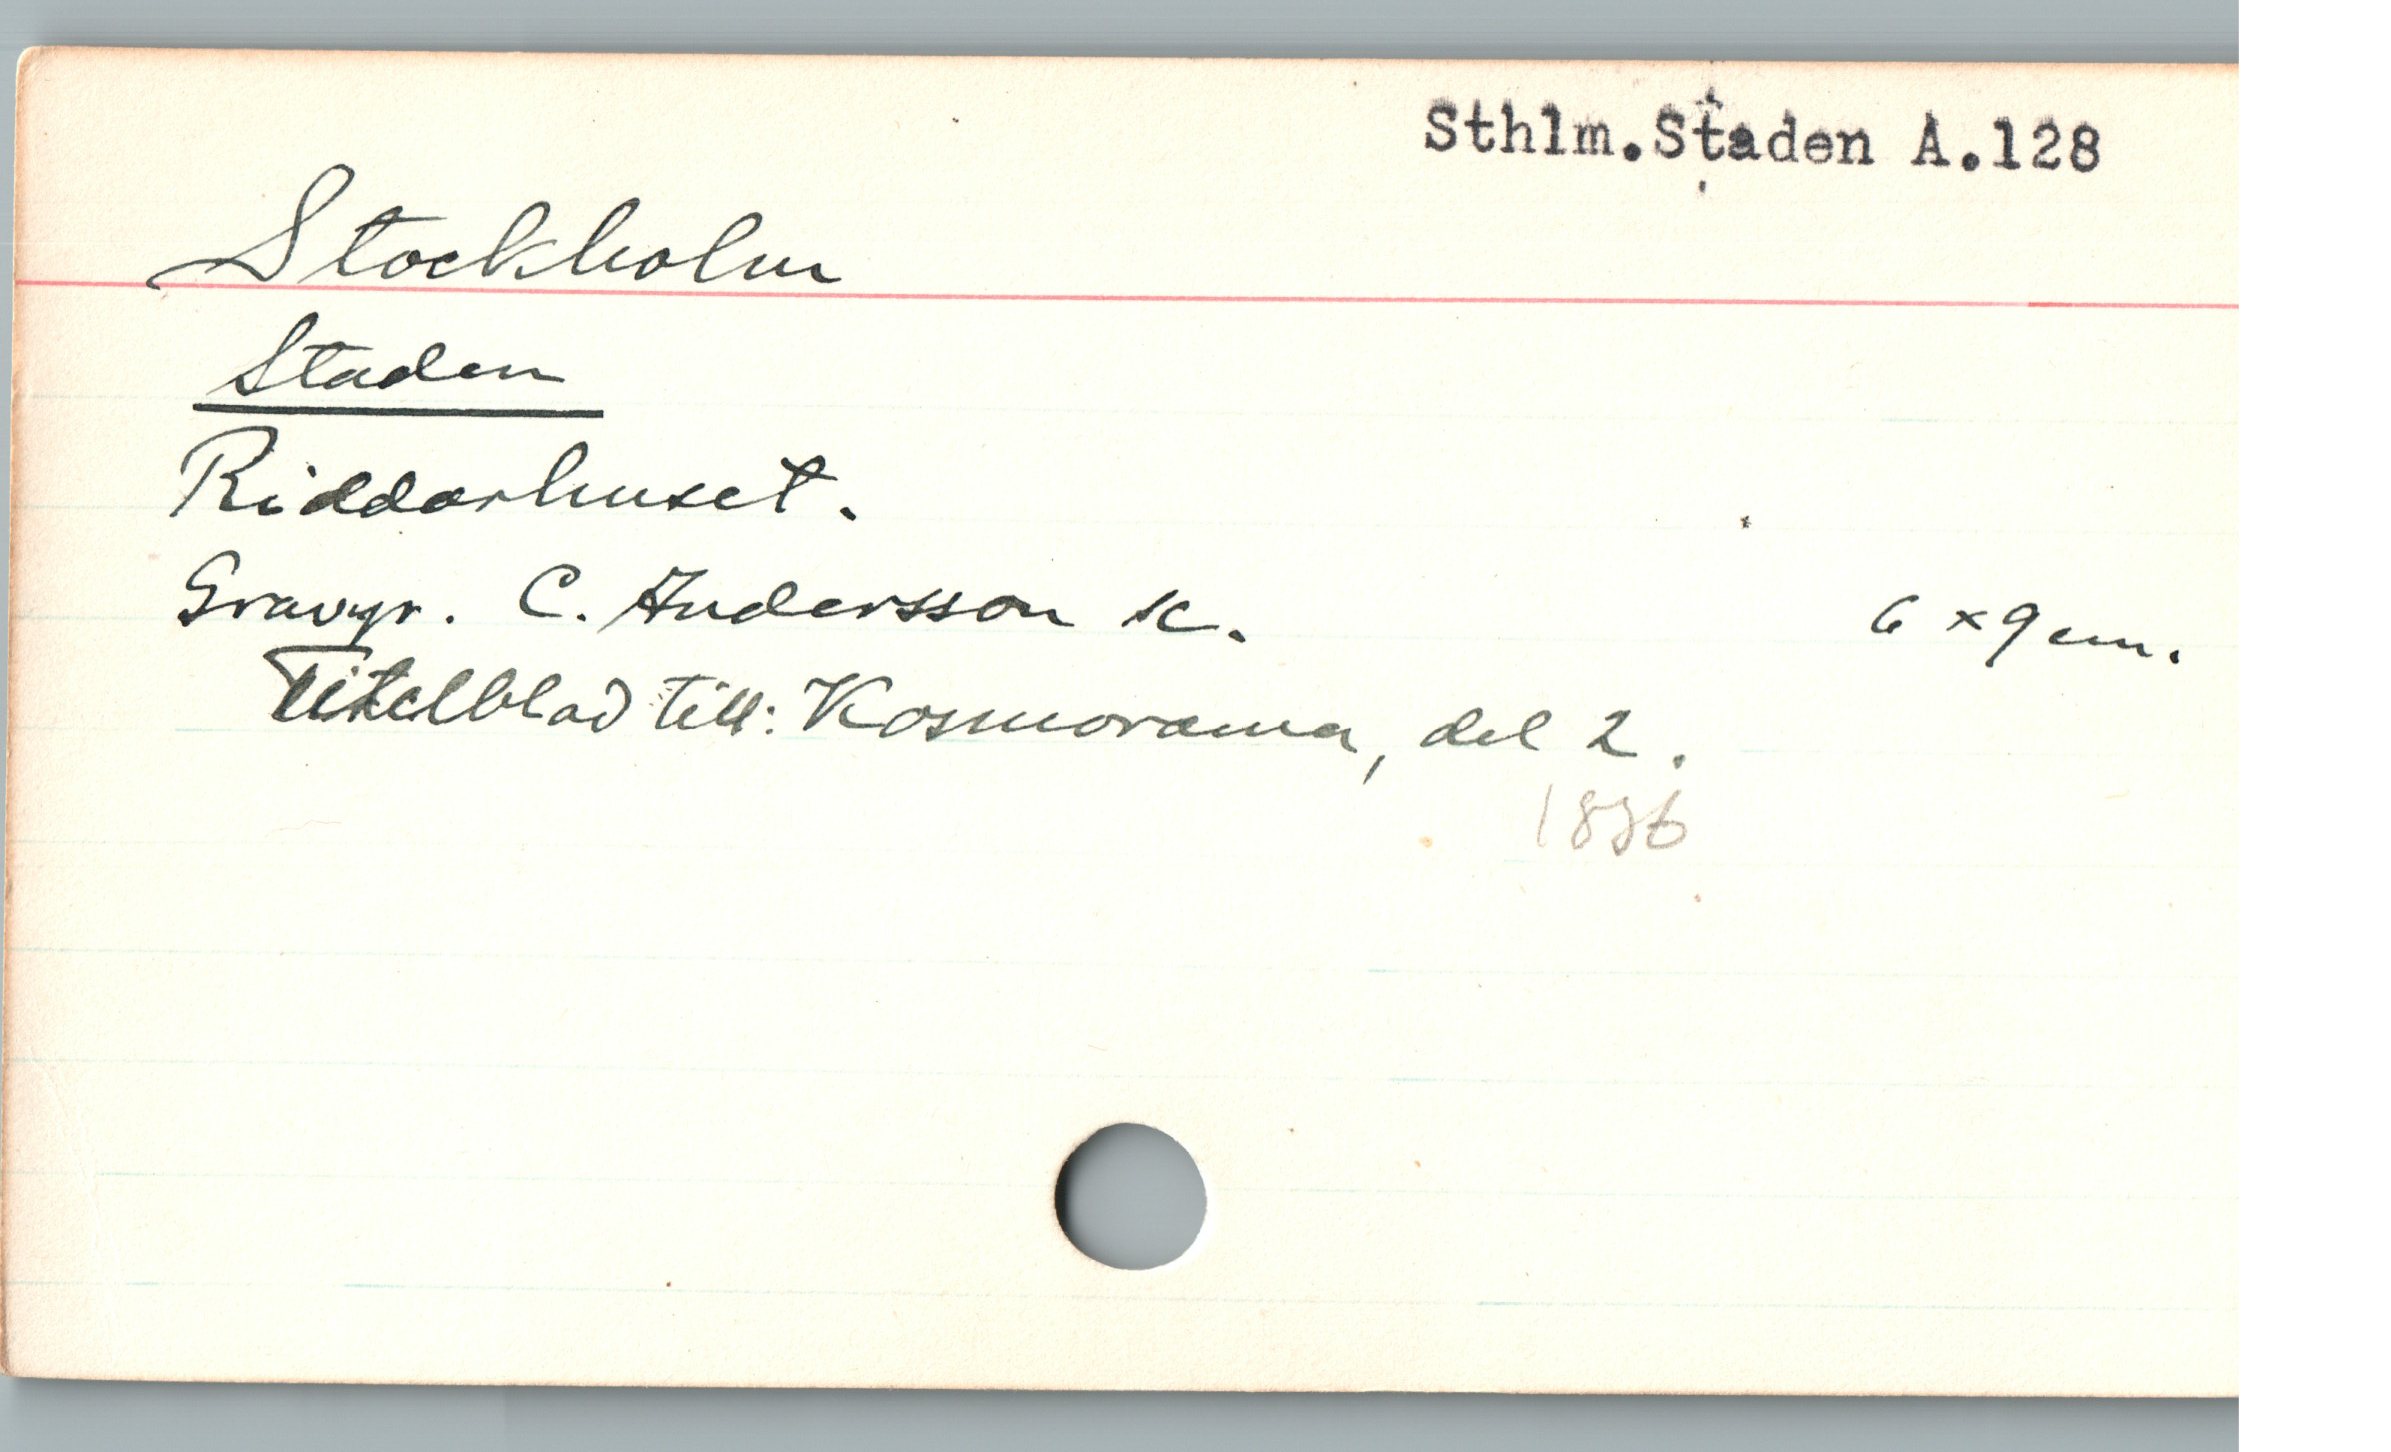 Sthlm.Staden A.128
Stockholm
Staden
Riddarhuset.
Gravyr. C. Andersson sc. 6 x 9 cm.
Titelblad till: Kosmorama, del 2.
1836